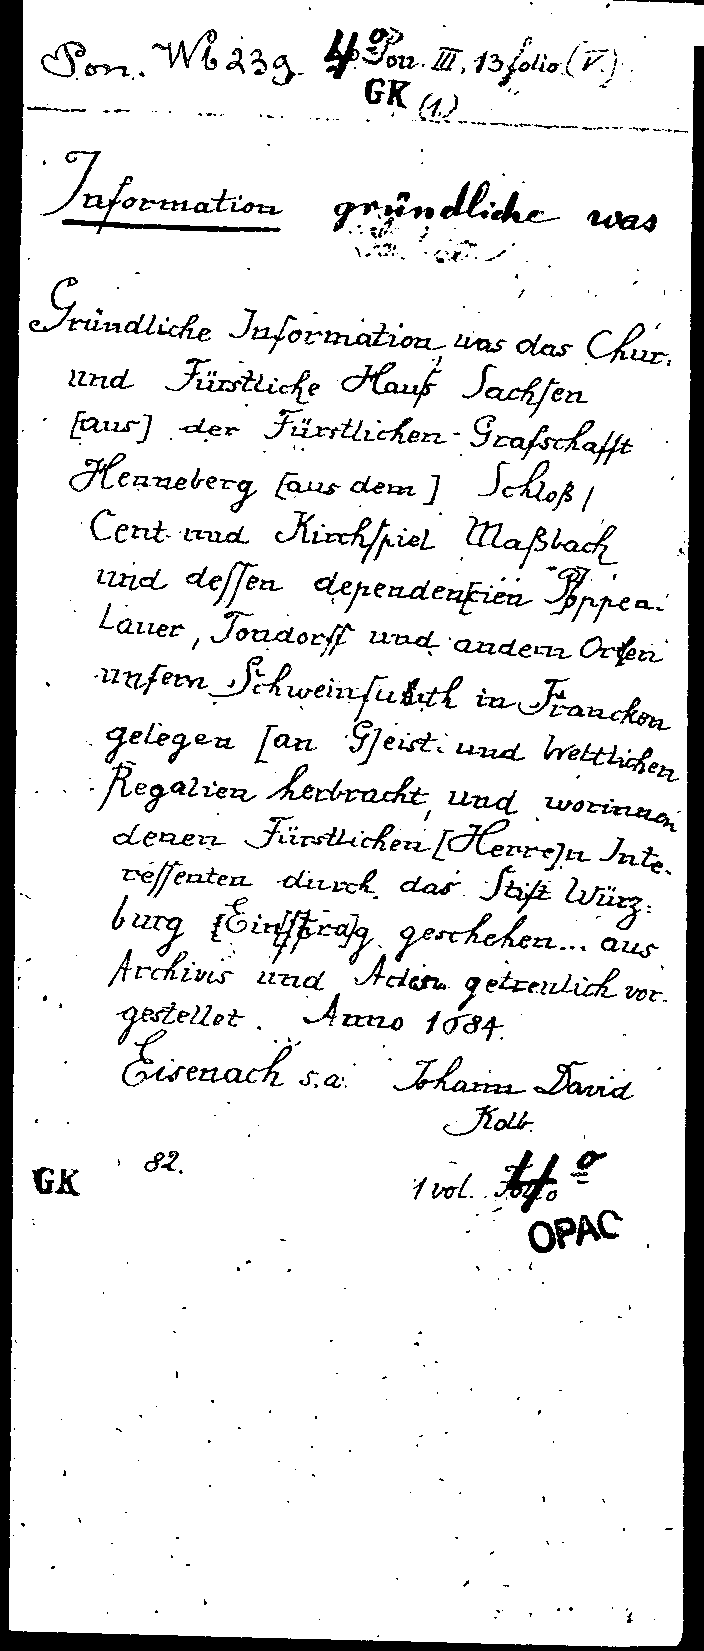 Pon. Wb 239 4º Pon. III, 13 folio (V.)
GK (1.)
Information gründliche was
Gründliche Information, was das Chur-
und Fürstliche Hauß Sachsen
[aus] der Fürstlichen Grafschafft
Henneberg [aus dem] Schloß /
Cent und Kirchspiel Maßbach
und dessen dependen[cien Poppen-
Lauer, Tondorff und andern Orten
unfern Schweinfurth in Francken
gelegen [an G]eist. und Weltlichen
Regalien herbracht, und worinnen
denen Fürstlichen [Herre]n Inte-
ressenten durch das Stift Würz-
burg [Eintra]g geschehen... aus
Archivis und Acten getreulich vor-
gestellet. Anno 1684.
Eisenach s.a. Johann David
Kolb.
82.
GK 1 vol. 4º
OPAC